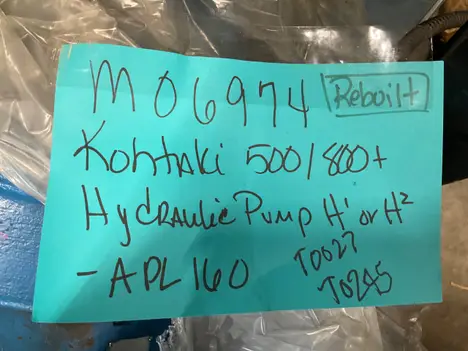 M06974 Rebuilt
Kohtaki 500/800+
Hydraulic Pump H1 or H2
- ADL160
T0027
T0245